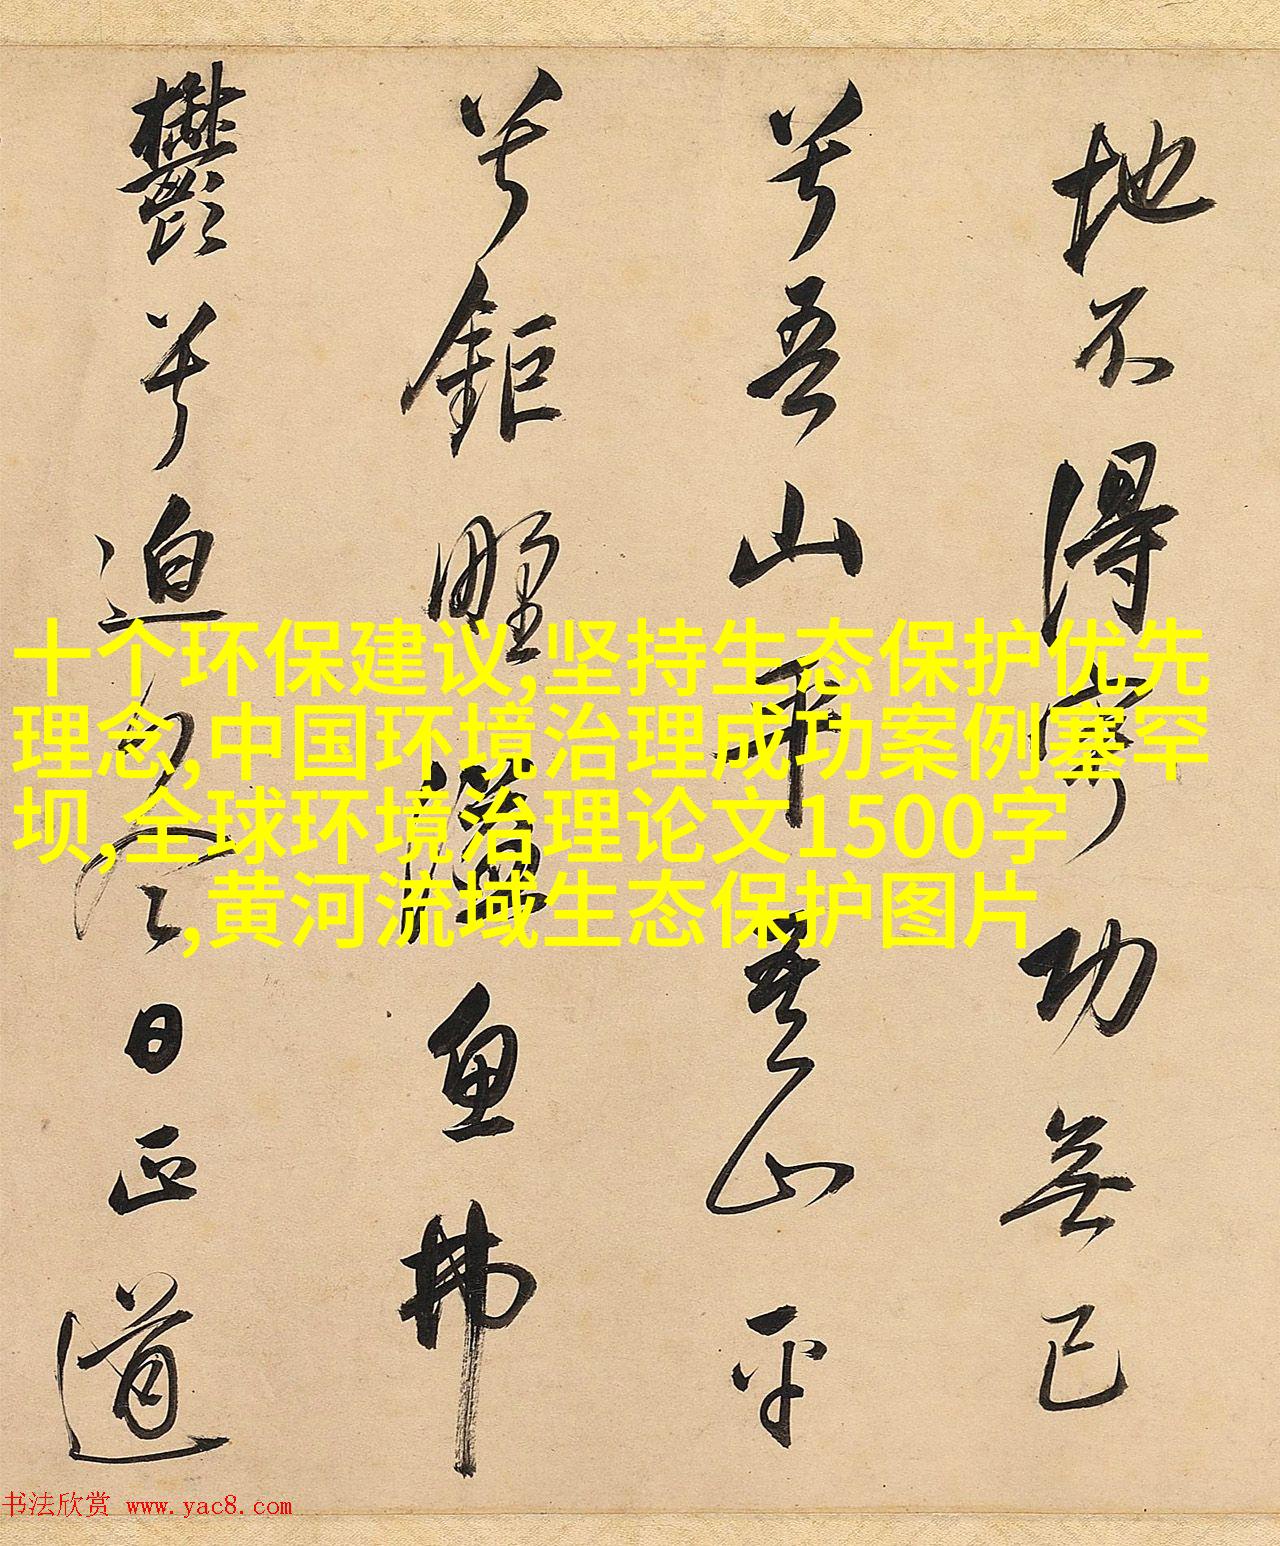 地不得寧功無已
兮吾山平吾山平
兮鉅野溢魚拂
鬱兮迫冬日正道
十个环保建议,坚持生态保护优先
理念,中国环境治理成功案例塞罕
坝,全球环境治理论文1500字
,黄河流域生态保护图片
书法欣赏 www.yac8.com